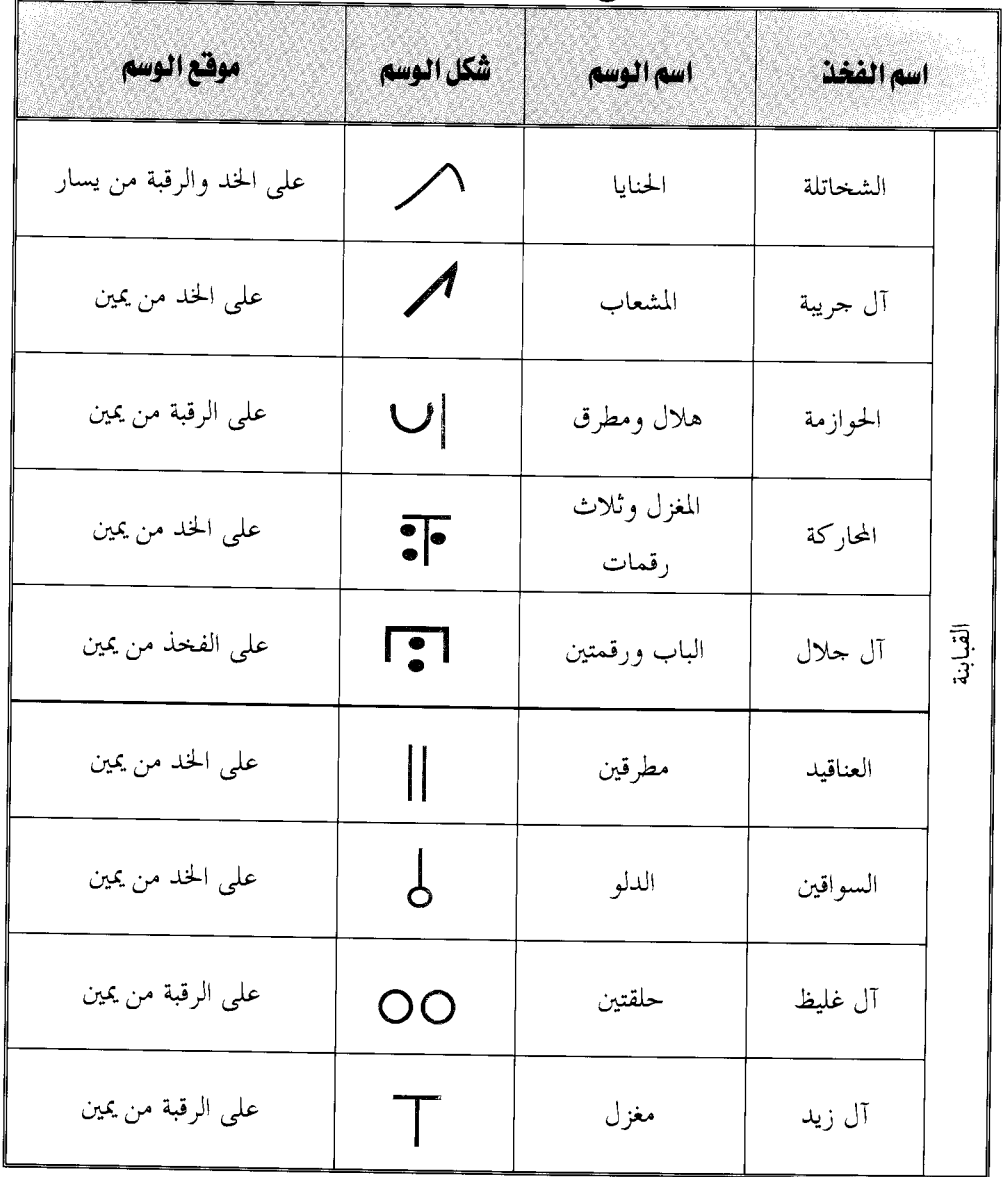 اسم الفخذ اسم الوسم شكل الوسم موقع الوسم
القبابنة
الشخاتلة الحنايا على الخد والرقبة من يسار
آل جريبة المشعاب على الخد من يمين
الحوازمة هلال ومطرق على الرقبة من يمين
المحاركة المغزل وثلاث رقمات على الخد من يمين
آل جلال الباب ورقمتين على الفخذ من يمين
العناقيد مطرقين على الخد من يمين
السواقين الدلو على الخد من يمين
آل غليظ حلقتين على الرقبة من يمين
آل زيد مغزل على الرقبة من يمين